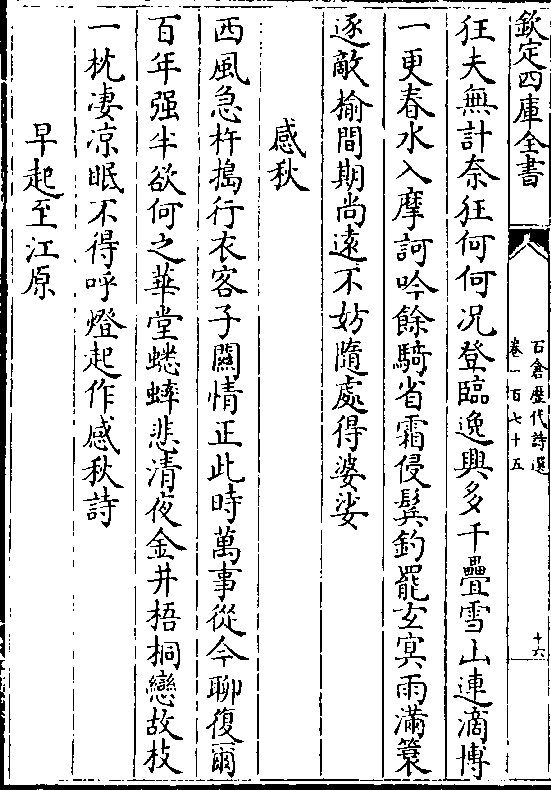 欽定四庫全書
石倉歴代詩選
卷一百七十五
十六
狂夫無計奈狂何何况登臨逸興多千疊雪山連滴博
一更春水入摩訶吟餘騎省霜侵鬂釣罷玄寞雨滿簑
逐敵揄間期尚遠不妨隨處得婆娑
感秋
西風急杵搗行衣客子闗情正此時萬事從今聊復爾
百年强半欲何之華堂蟋蟀悲清夜金井梧桐戀故枝
一枕凄凉眠不得呼燈起作感秋詩
早起至江原